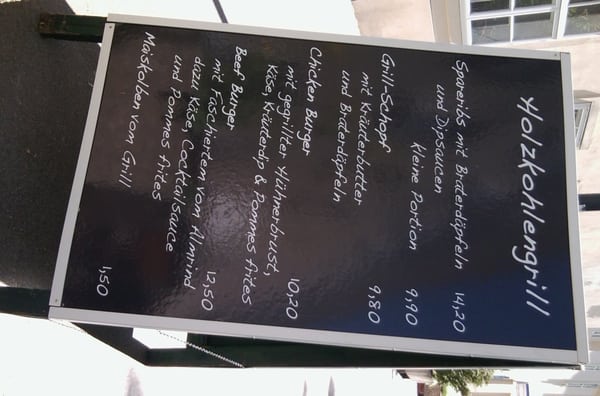 Holzkohlengrill
Spareribs mit Braterdäpfeln 14,20
und Dipsaucen
kleine Portion 9,90
Grill-Schopf 9,80
mit Kräuterbutter
und Braterdäpfeln
Chicken Burger 10,20
mit gegrillter Hühnerbrust,
Käse, Kräuterdip & Pommes frites
Beef Burger 12,50
mit Faschiertem vom Almrind
dazu Käse, Cocktailsauce
und Pommes frites
Maiskolben vom Grill 1,50